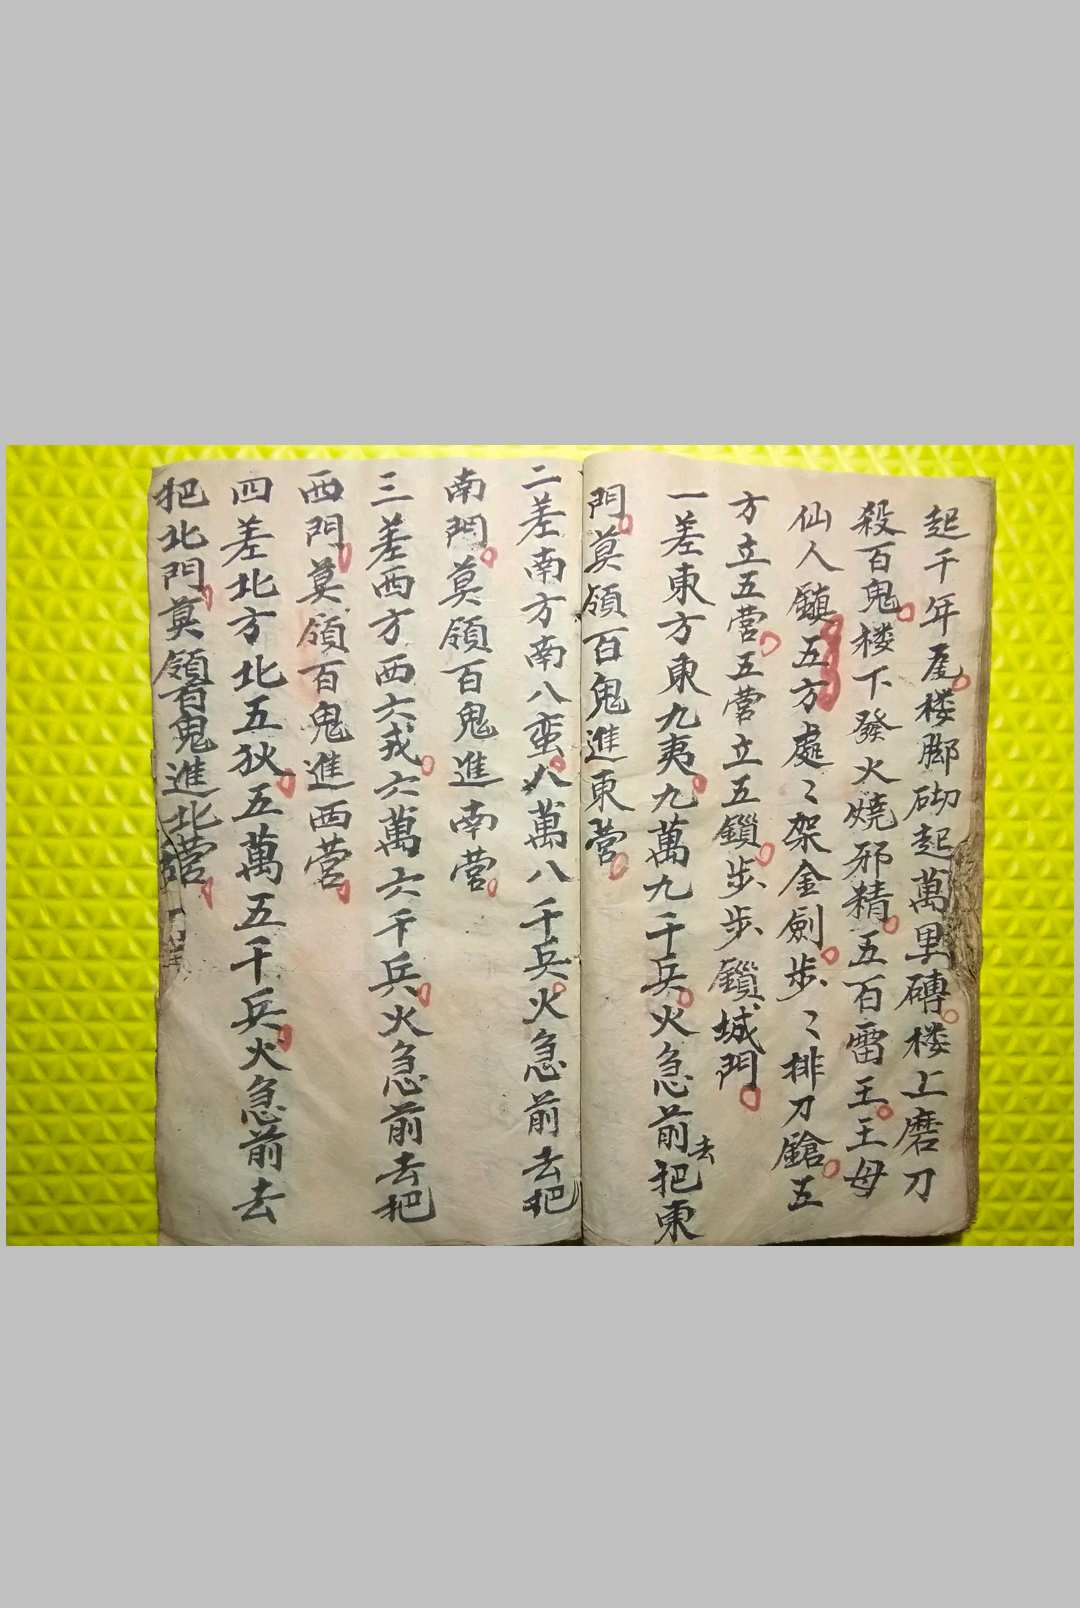 起千年屋楼脚砌起萬里磚楼上磨刀
殺百鬼楼下發火燒邪精五百雷王王母
仙人鎮五方處〻架金劍步〻排刀鎗五
方立五营五营立五鎖步步鎖城門
一差東方東九夷九萬九千兵火急前去把東
門莫領百鬼進東营
二差南方南八蛮八萬八千兵火急前去把
南門莫領百鬼進南营
三差西方西六戎六萬六千兵火急前去把
西門莫領百鬼進西营
四差北方北五狄五萬五千兵火急前去
把北門莫領百鬼進北营